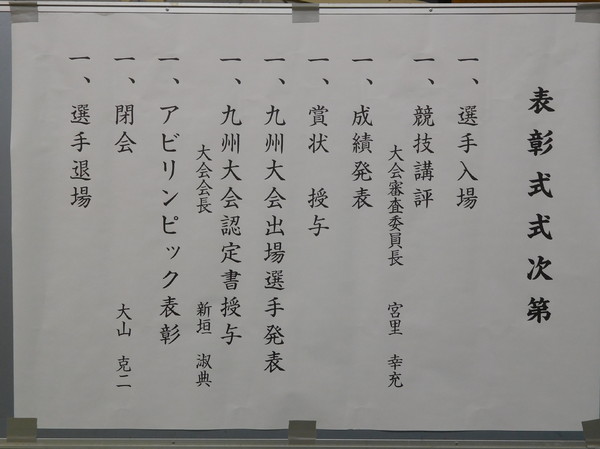 表彰式式次第
一、選手入場
一、競技講評
大会審査委員長 宮里 幸充
一、成績発表
一、賞状 授与
一、九州大会出場選手発表
一、九州大会認定書授与
大会会長 新垣 淑典
一、アビリンピック表彰
一、閉会
大山 克二
一、選手退場